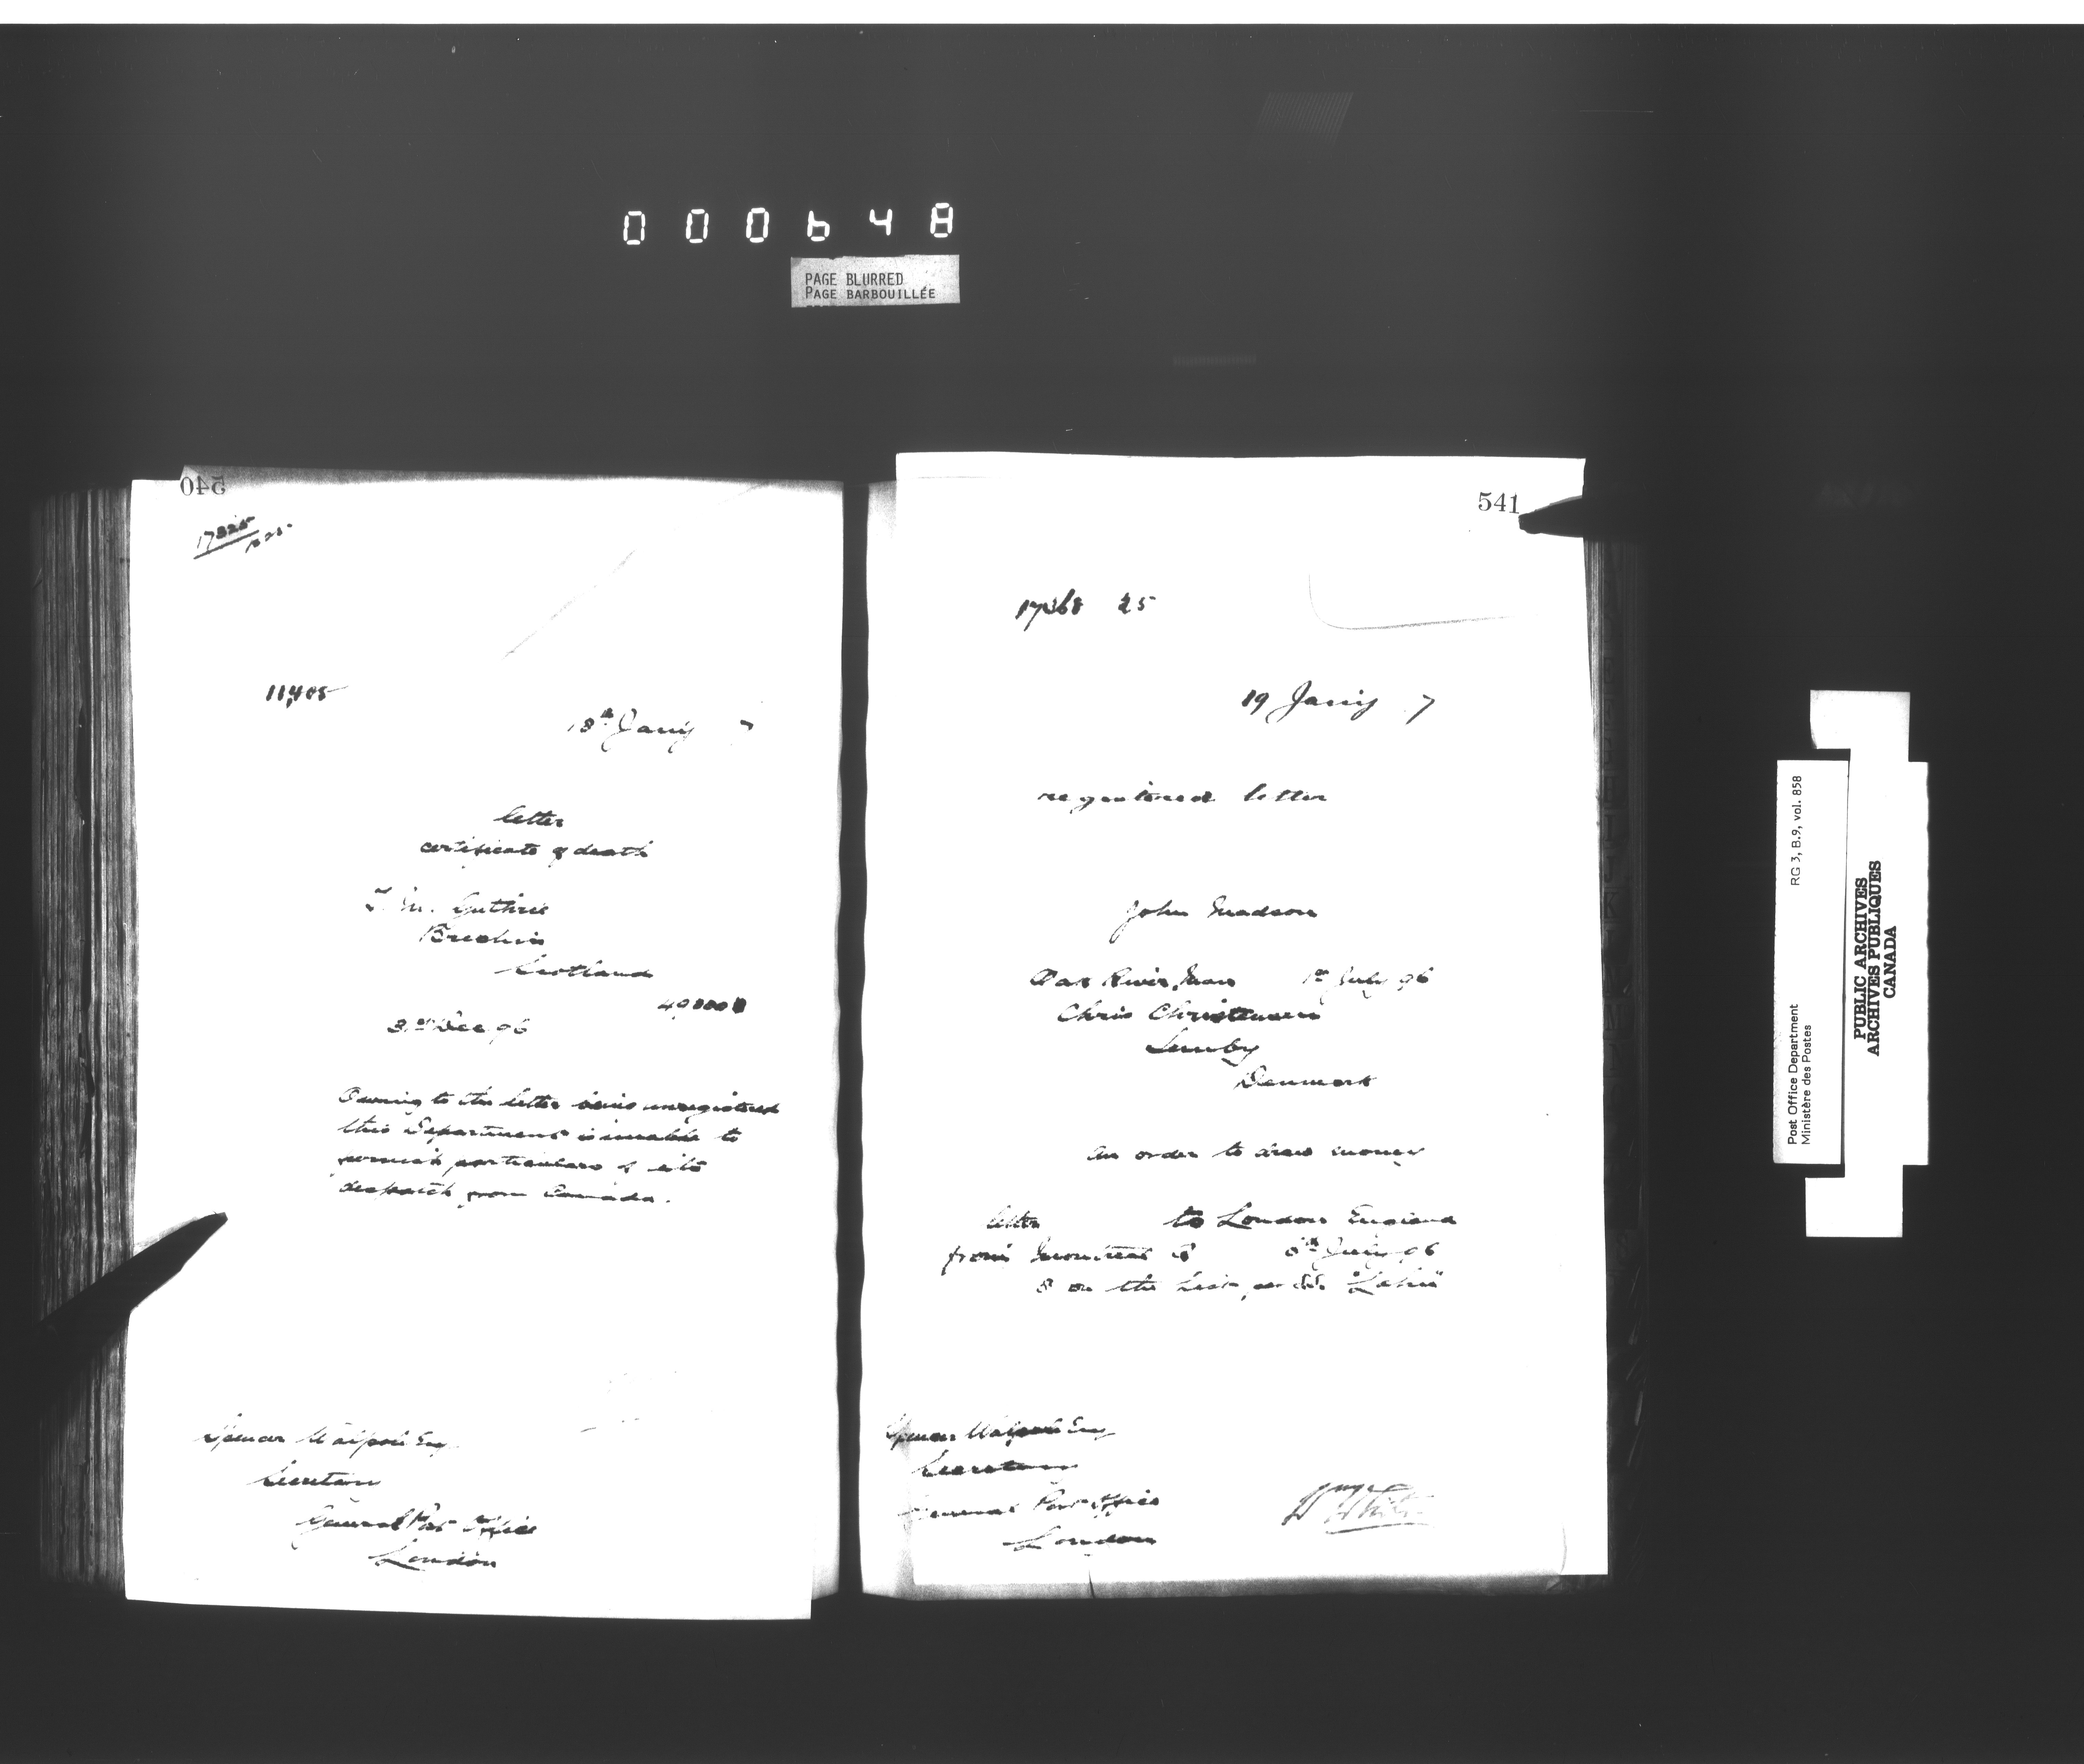 000648
PAGE BLURRED
PAGE BARBOUILLÉE
540
17325
11,405
18th Jany 7
letter
certificate of death
Guthrie
Brechin
Scotland
3rd Dec 96
Owing to the letter being unregistered
this Department is unable to
furnish particulars of its
despatch from Canada.
Spencer Walpole Esq
Secretary
General Post Office
London
541
17368 25
19 Jany 7
registered letter
John Madson
Oak River, Man 1st July 96
Chris Christensen
Denmark
an order to draw money
letter to London England
from Montreal July 96
8 on the List, per SS.
Spencer Walpole Esq
Secretary
General Post Office
London
Post Office Department RG 3, B.9, vol. 858
Ministère des Postes
PUBLIC ARCHIVES
ARCHIVES PUBLIQUES
CANADA